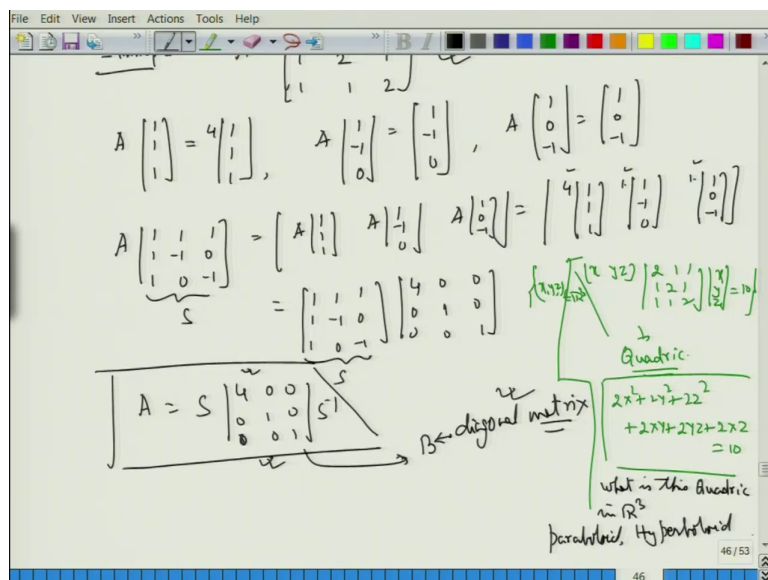 File Edit View Insert Actions Tools Help
B I
1 2 1
1 1 2
A [1 1 1] = 4 [1 1 1], A [1 -1 0] = [1 -1 0], A [1 0 -1] = [1 0 -1]
A [1 1 1; 1 -1 0; 1 0 -1] = [A [1 1 1] A [1 -1 0] A [1 0 -1]] = [4 [1 1 1] 1. [1 -1 0] 1. [1 0 -1]]
S
= [1 1 1; 1 -1 0; 1 0 -1] [4 0 0; 0 1 0; 0 0 1]
S
A = S [4 0 0; 0 1 0; 0 0 1] S⁻¹
B ← diagonal matrix
{(x,y,z) ∈ R³ [x y z] [2 1 1; 1 2 1; 1 1 2] [x y z] = 10}
Quadric.
2x²+2y²+2z²
+2xy+2yz+2xz
=10
what is this Quadric
in R³
paraboloid, Hyperboloid
46/53
46